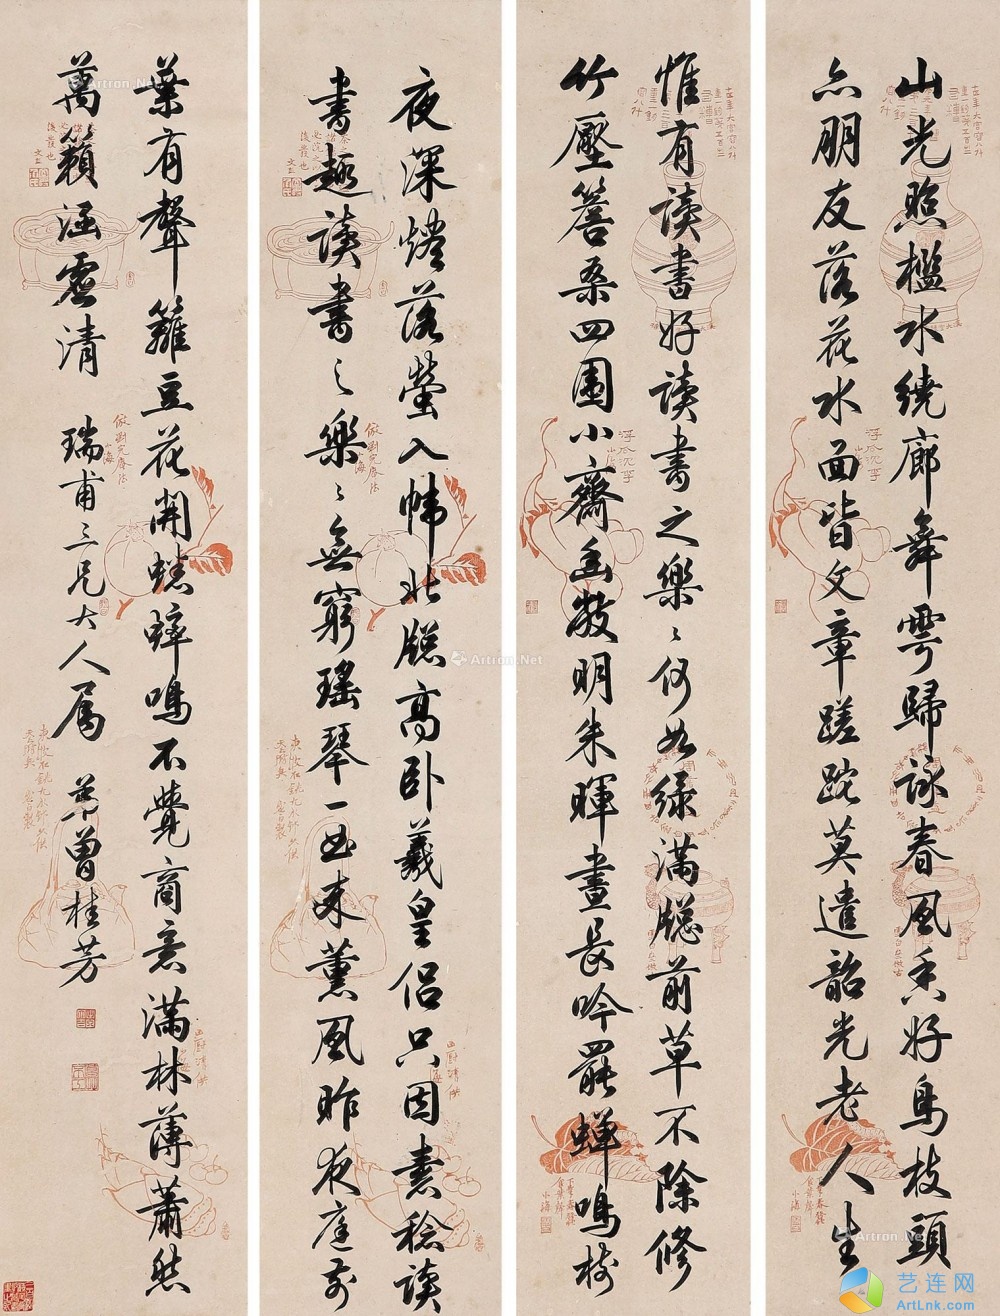 山光照檻水繞廊舞雩歸詠春風香好鳥枝頭
亦朋友落花水面皆文章蹉跎莫遣韶光老人生
惟有讀書好讀書之樂〻何如綠滿牕前草不除修
竹壓簷桑四圍小齋幽敞明朱暉晝長吟罷蟬鳴樹
夜深燼落螢入幃北牕高卧羲皇侶只因素稔讀
書趣讀書之樂〻無窮瑤琴一曲來薰風昨夜庭前
葉有聲籬豆花開蟋蟀鳴不覺商意滿林薄蕭然
萬籟涵虛清 瑞甫三兄大人屬 弟曾桂芳
浮瓜沉李
Artron.Net
艺连网
ArtLnk.com